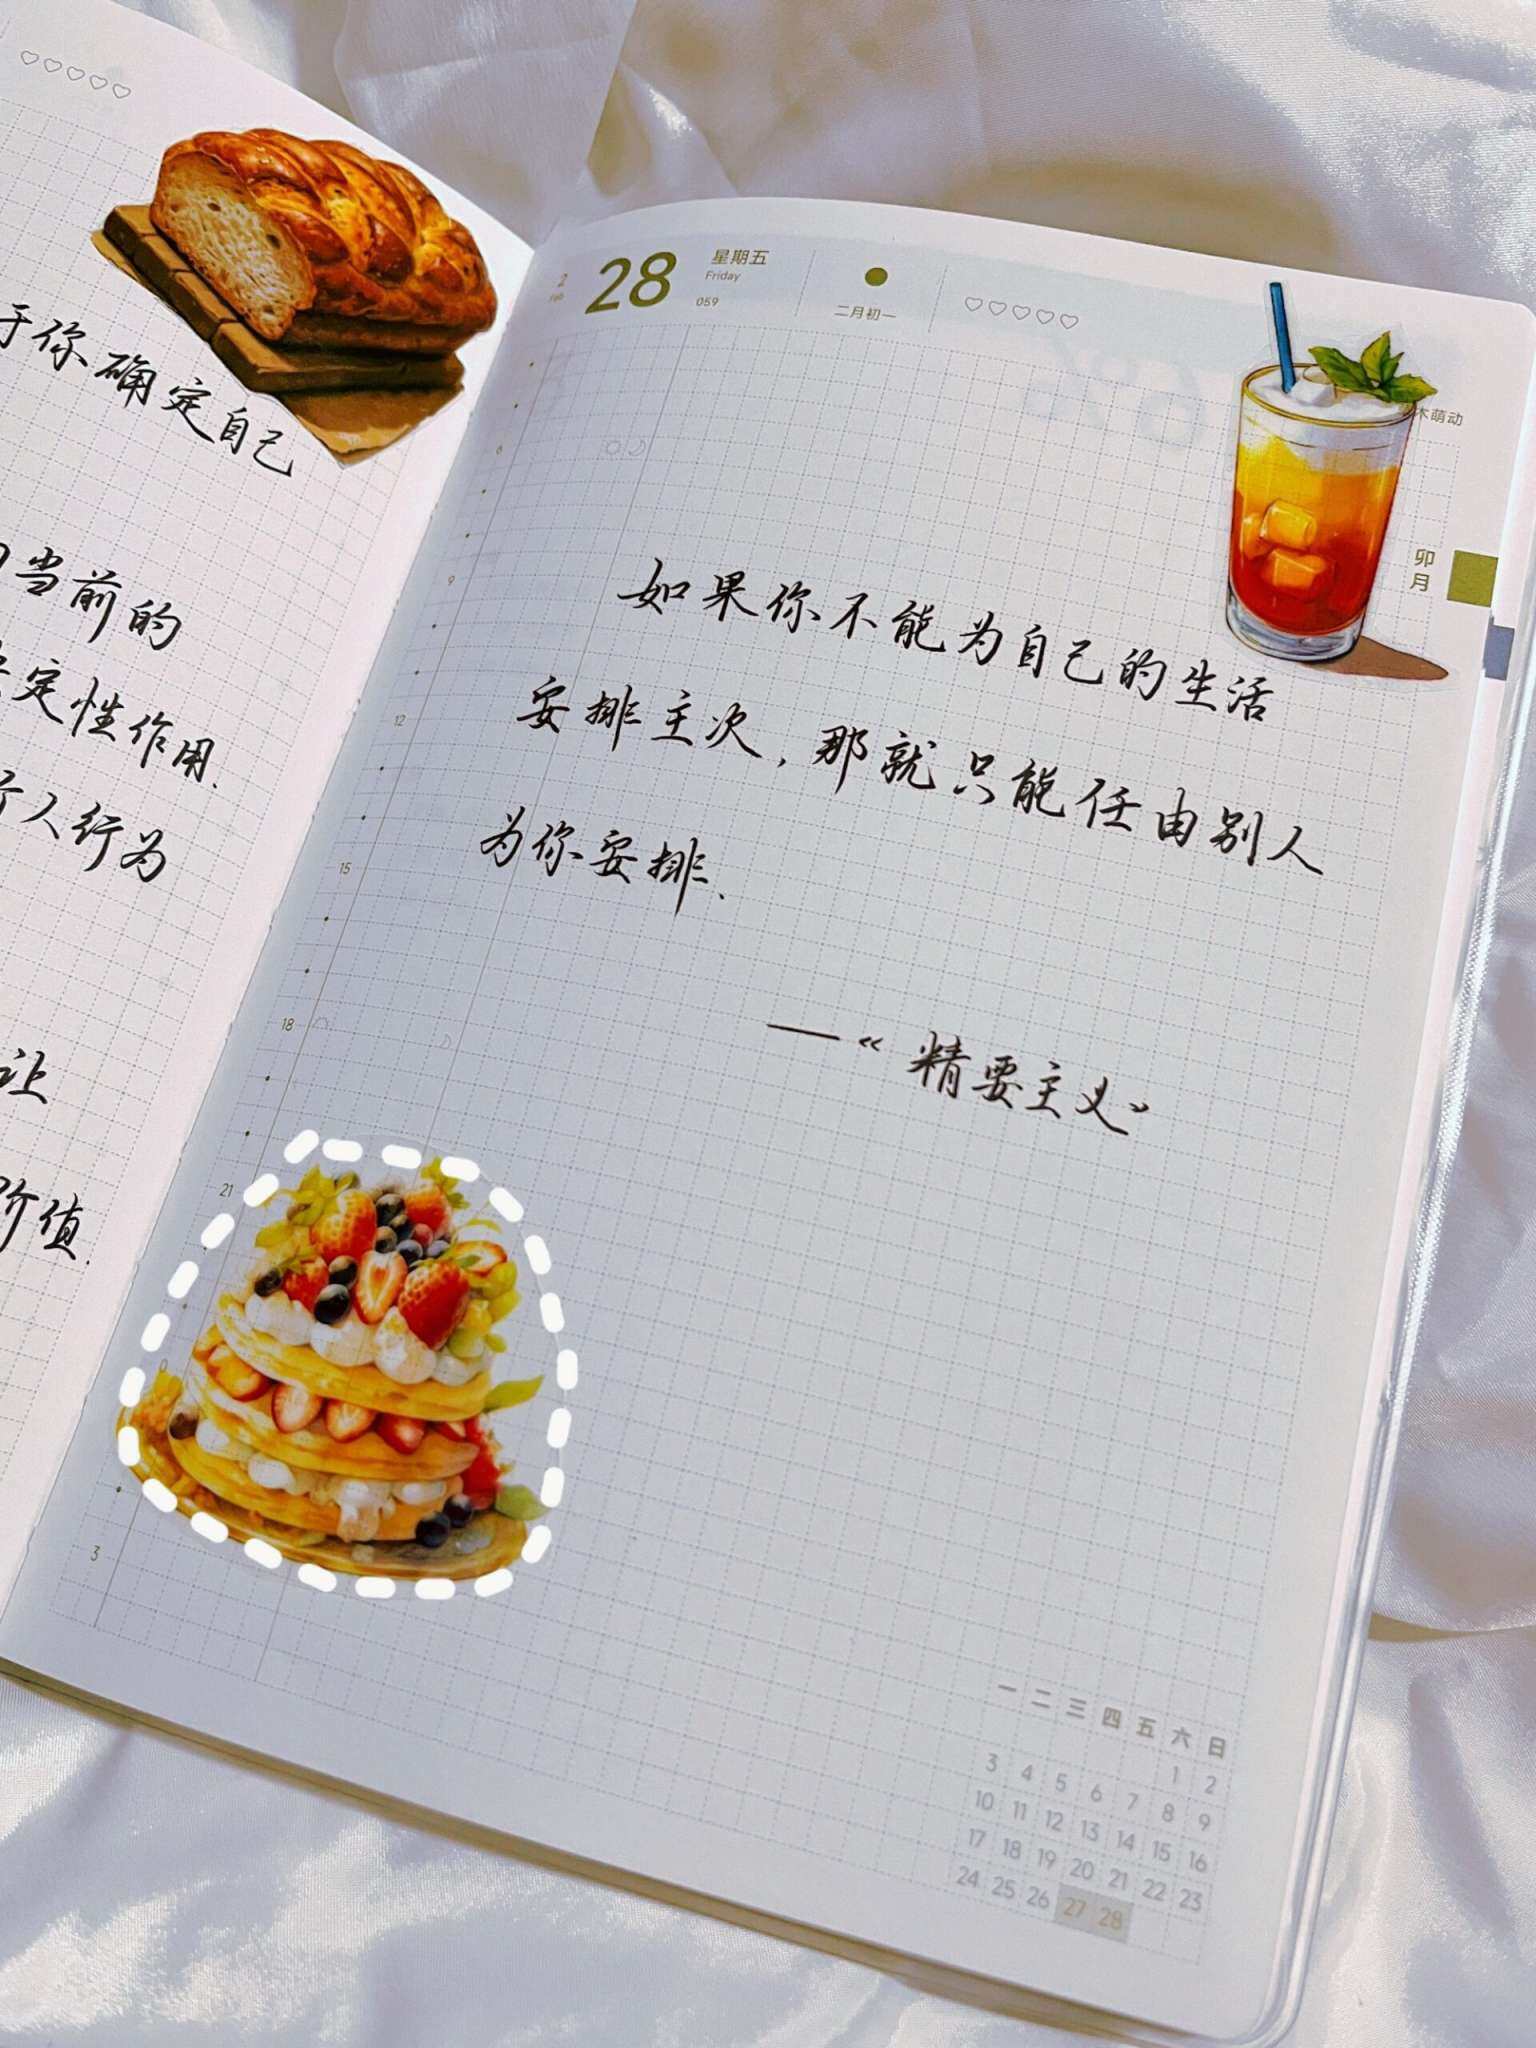 于你确定自己
当前的
定性作用.
个人行为
让
价值.
2
Feb
28
星期五
Friday
059
二月初一
木萌动
卯月
6
9
12
15
18
21
0
3
如果你不能为自己的生活
安排主次,那就只能任由别人
为你安排.
——《精要主义》
一 二 三 四 五 六 日
1 2
3 4 5 6 7 8 9
10 11 12 13 14 15 16
17 18 19 20 21 22 23
24 25 26 27 28